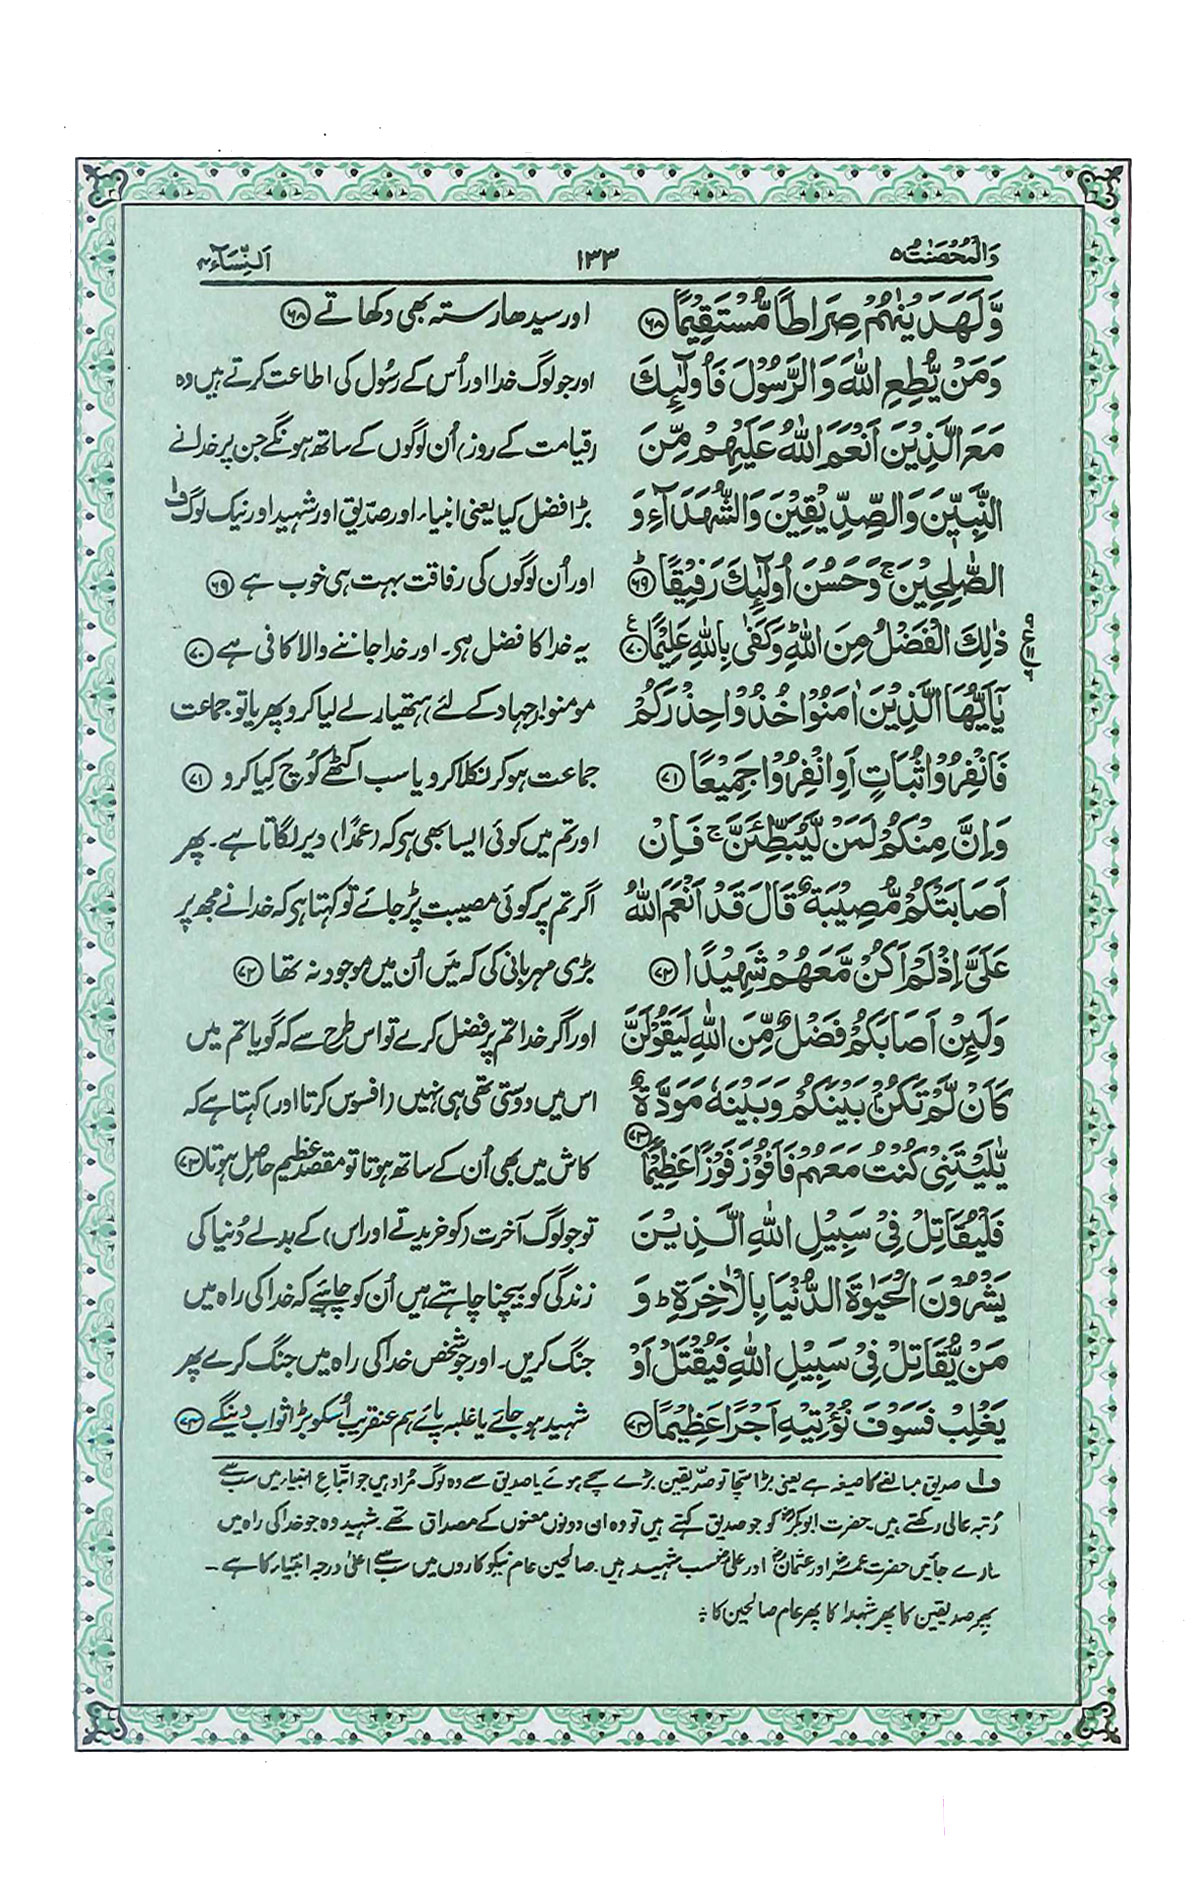 وَالْمُحْصَنٰتُ ۵ ۱۳۳ اَلنِّسَآء ۴
وَّلَهَدَيْنٰهُمْ صِرَاطًا مُّسْتَقِيْمًا ﴿۶۸﴾ اور سیدھا رستہ بھی دکھاتے ﴿۶۸﴾
وَمَنْ يُّطِعِ اللّٰهَ وَالرَّسُوْلَ فَاُولٰٓئِكَ اور جو لوگ خدا اور اُس کے رسُول کی اطاعت کرتے ہیں وہ
مَعَ الَّذِيْنَ اَنْعَمَ اللّٰهُ عَلَيْهِمْ مِّنَ (قیامت کے روز) اُن لوگوں کے ساتھ ہونگے جن پر خدا نے
النَّبِيّٖنَ وَالصِّدِّيْقِيْنَ وَالشُّهَدَآءِ وَ بڑا فضل کیا یعنی انبیاء اور صدّیق اور شہید اور نیک لوگ ف۱
الصّٰلِحِيْنَ ۚ وَحَسُنَ اُولٰٓئِكَ رَفِيْقًا ؕ﴿۶۹﴾ اور اُن لوگوں کی رفاقت بہت ہی خوب ہے ﴿۶۹﴾
ذٰلِكَ الْفَضْلُ مِنَ اللّٰهِ ؕ وَكَفٰى بِاللّٰهِ عَلِيْمًا ﴿۷۰﴾ یہ خدا کا فضل ہے۔ اور خدا جاننے والا کافی ہے ﴿۷۰﴾
يٰۤاَيُّهَا الَّذِيْنَ اٰمَنُوْا خُذُوْا حِذْرَكُمْ مومنو! (جہاد کے لئے) ہتھیار لے لیا کرو پھر یا تو جماعت
فَانْفِرُوْا ثُبَاتٍ اَوِ انْفِرُوْا جَمِيْعًا ﴿۷۱﴾ جماعت ہو کر نکلا کرو یا سب اکٹھے کُوچ کیا کرو ﴿۷۱﴾
وَاِنَّ مِنْكُمْ لَمَنْ لَّيُبَطِّئَنَّ ۚ فَاِنْ اور تم میں کوئی ایسا بھی ہے کہ (عمدًا) دیر لگاتا ہے۔ پھر
اَصَابَتْكُمْ مُّصِيْبَةٌ قَالَ قَدْ اَنْعَمَ اللّٰهُ اگر تم پر کوئی مصیبت پڑ جائے تو کہتا ہے کہ خدا نے مجھ پر
عَلَىَّ اِذْ لَمْ اَكُنْ مَّعَهُمْ شَهِيْدًا ﴿۷۲﴾ بڑی مہربانی کی کہ مَیں اُن میں موجود نہ تھا ﴿۷۲﴾
وَلَئِنْ اَصَابَكُمْ فَضْلٌ مِّنَ اللّٰهِ لَيَقُوْلَنَّ اور اگر خدا تم پر فضل کرے تو اس طرح سے کہ گویا تم میں
كَاَنْ لَّمْ تَكُنْۢ بَيْنَكُمْ وَبَيْنَهٗ مَوَدَّةٌ اس میں دوستی تھی ہی نہیں (افسوس کرتا اور) کہتا ہے کہ
يّٰلَيْتَنِىْ كُنْتُ مَعَهُمْ فَاَفُوْزَ فَوْزًا عَظِيْمًا ﴿۷۳﴾ کاش میں بھی اُن کے ساتھ ہوتا تو مقصد عظیم حاصل ہوتا ﴿۷۳﴾
فَلْيُقَاتِلْ فِىْ سَبِيْلِ اللّٰهِ الَّذِيْنَ تو جو لوگ آخرت (کو خریدتے اور اس) کے بدلے دُنیا کی
يَشْرُوْنَ الْحَيٰوةَ الدُّنْيَا بِالْاٰخِرَةِ ؕ وَ زندگی کو بیچنا چاہتے ہیں اُن کو چاہیئے کہ خدا کی راہ میں
مَنْ يُّقَاتِلْ فِىْ سَبِيْلِ اللّٰهِ فَيُقْتَلْ اَوْ جنگ کریں۔ اور جو شخص خدا کی راہ میں جنگ کرے پھر
يَغْلِبْ فَسَوْفَ نُؤْتِيْهِ اَجْرًا عَظِيْمًا ﴿۷۴﴾ شہید ہو جائے یا غلبہ پائے ہم عنقریب اُسکو بڑا ثواب دینگے ﴿۷۴﴾
ف۱ صدیق مبالغے کا صیغہ ہے یعنی بڑا سچا تو صدّیقین بڑے سچے ہوئے یا صدیق سے وہ لوگ مُراد ہیں جو اتباعِ انبیاء میں سب سے
رُتبہ عالی رکھتے ہیں۔ حضرت ابوبکرؓ کو جو صدیق کہتے ہیں تو وہ ان دونوں معنوں کے مصداق تھے۔ شہید وہ جو خدا کی راہ میں
مارے جائیں حضرت عمرؓ اور عثمانؓ اور علیؓ سب شہید ہیں۔ صالحین عام نیکو کاروں میں سب سے اعلیٰ درجہ انبیاء کا ہے۔
پھر صدیقین کا پھر شہدا کا پھر عام صالحین کا